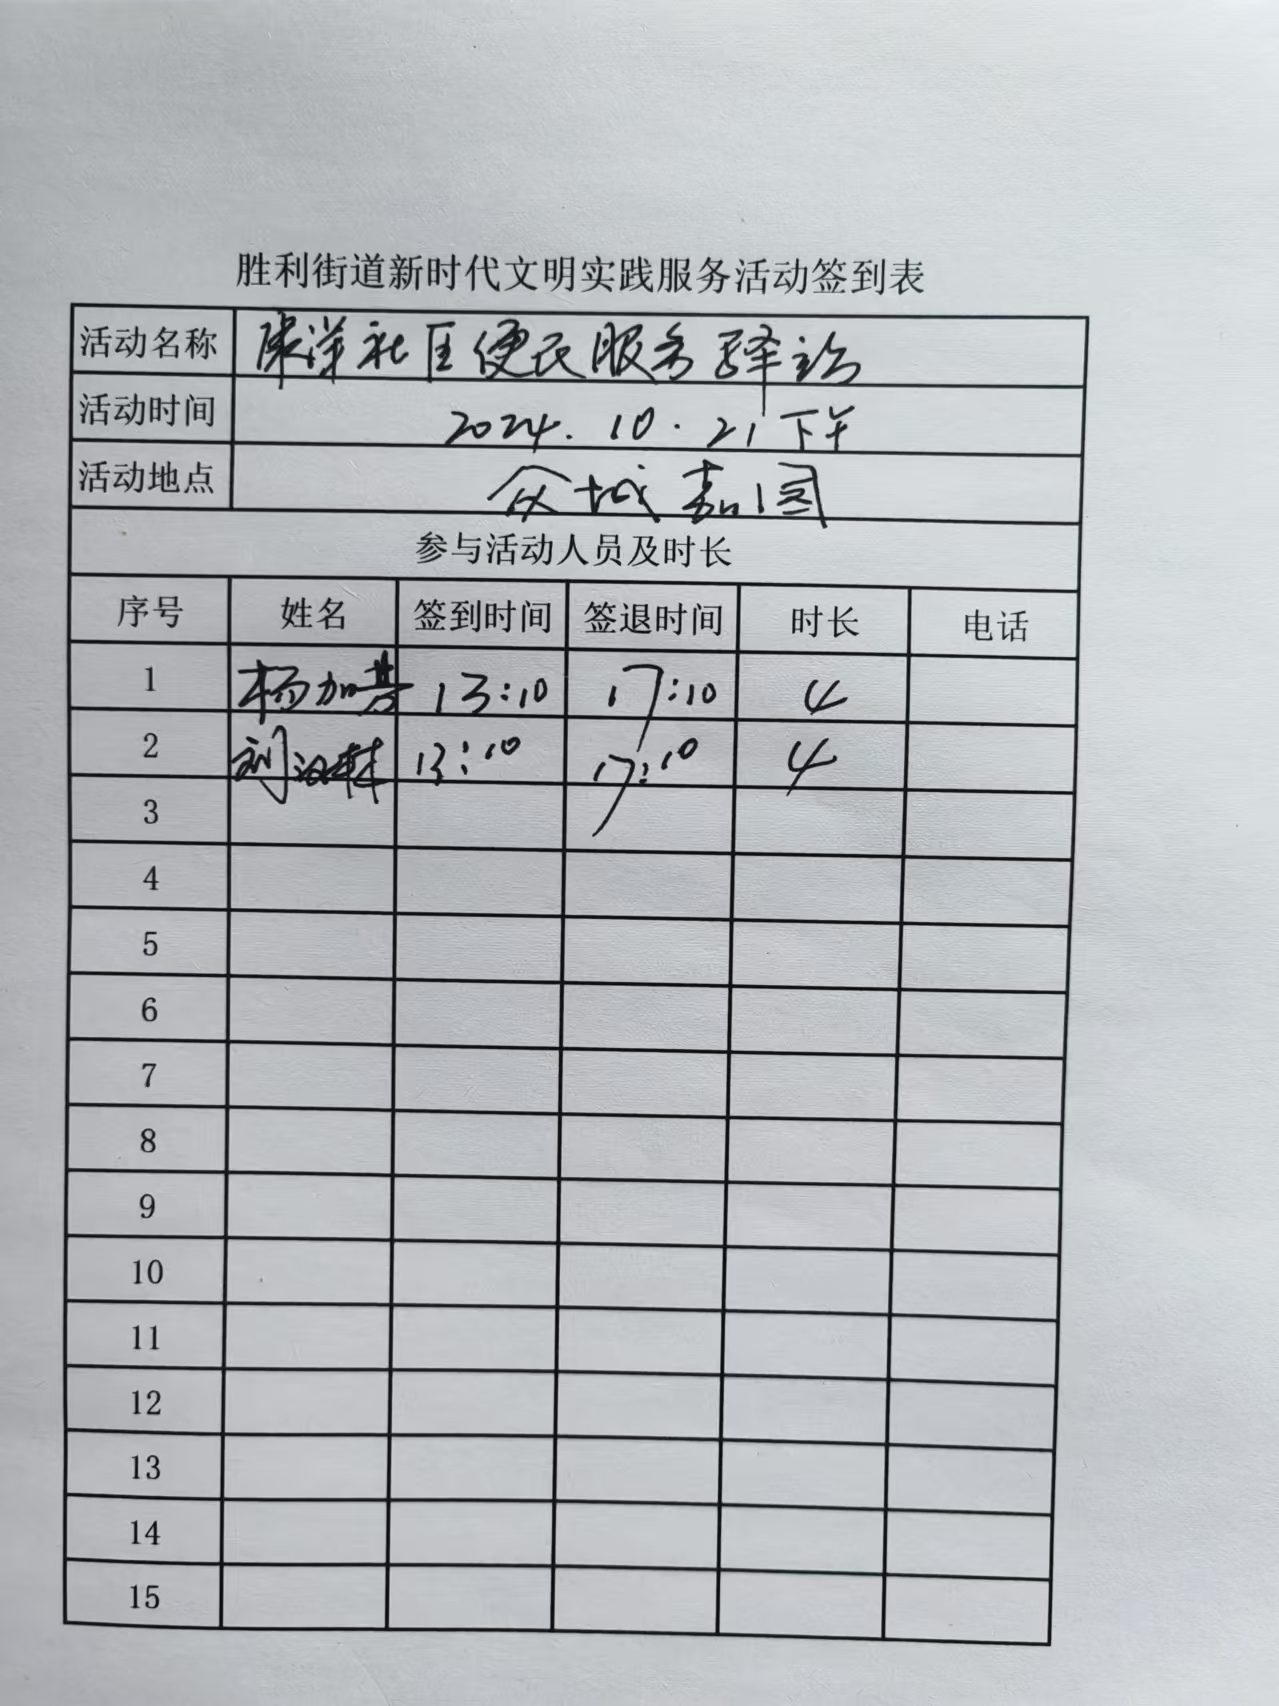 胜利街道新时代文明实践服务活动签到表
活动名称 康洋社区便民服务驿站
活动时间 2024.10.21下午
活动地点 众城嘉园
参与活动人员及时长
序号 姓名 签到时间 签退时间 时长 电话
1 杨加 13:10 17:10 4
2 刘汉林 13:10 17:10 4
3
4
5
6
7
8
9
10
11
12
13
14
15